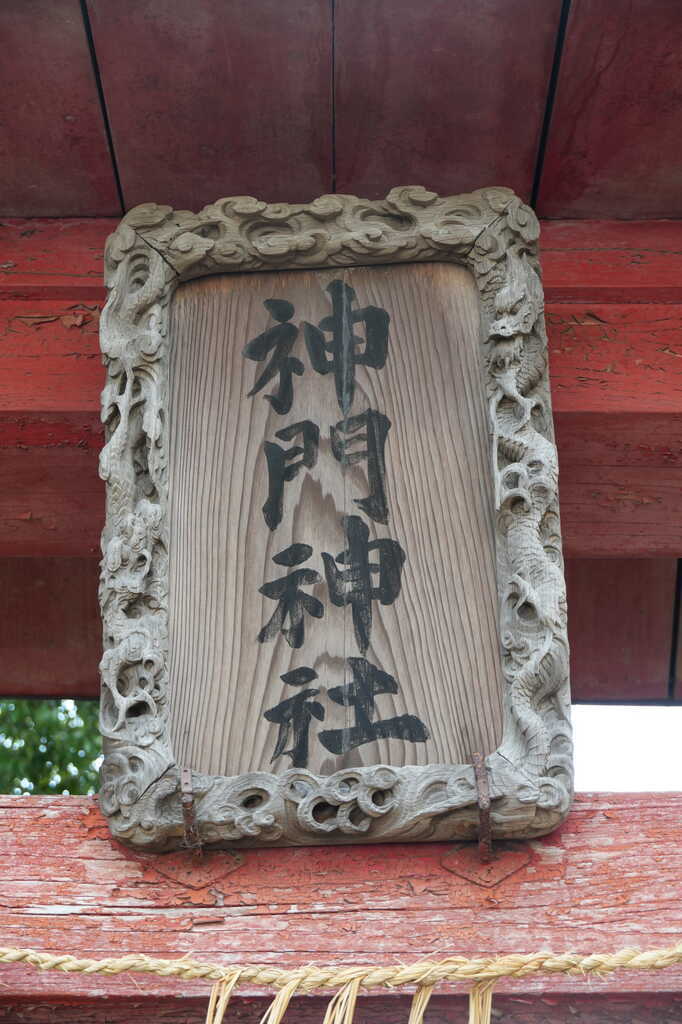 神門神社